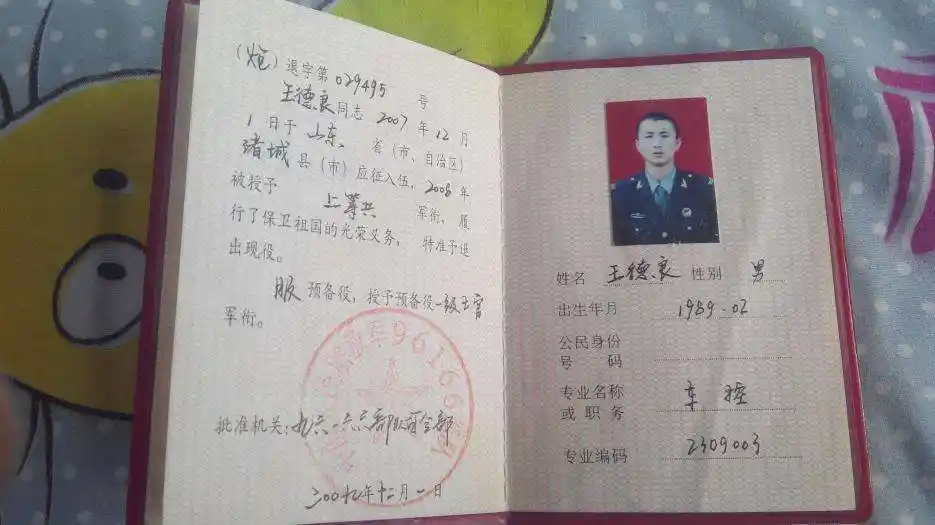 (炮)退字第029495号
王德良同志2007年12月
1日于山东省(市、自治区)
诸城县(市)应征入伍,2008年
被授予上等兵军衔,履
行了保卫祖国的光荣义务,特准予退
出现役。
服预备役,授予预备役一级士官
军衔。
96166
批准机关:九六一六六部队司令部
二〇〇九年十二月一日
姓名 王德良 性别 男
出生年月 1989.02
公民身份
号码
专业名称 车 控
或职务
专业编码 2309003